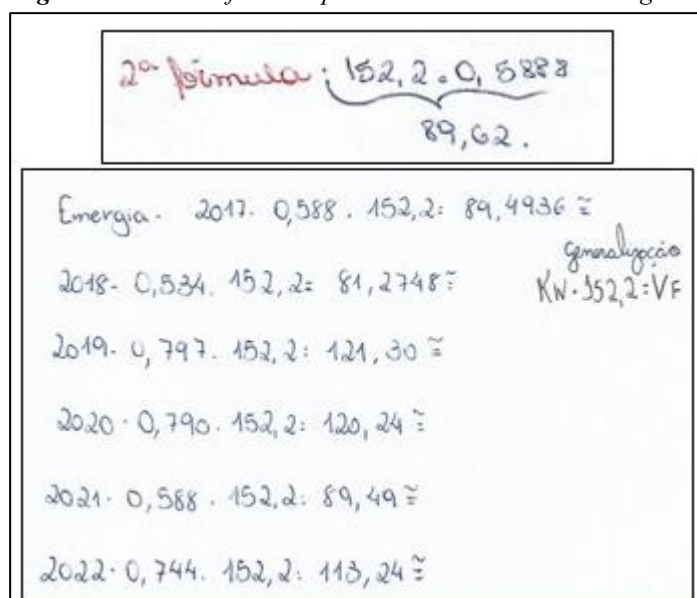 2ª fórmula: 152,2 . 0,5888
89,62.
Energia - 2017- 0,588 . 152,2= 89,4936 ≅
generalização
2018- 0,534. 152,2= 81,2748 ≅
KW . 152,2=VF
2019- 0,797. 152,2= 121,30 ≅
2020- 0,790. 152,2= 120,24 ≅
2021- 0,588 . 152,2= 89,49 ≅
2022- 0,744. 152,2= 113,24 ≅